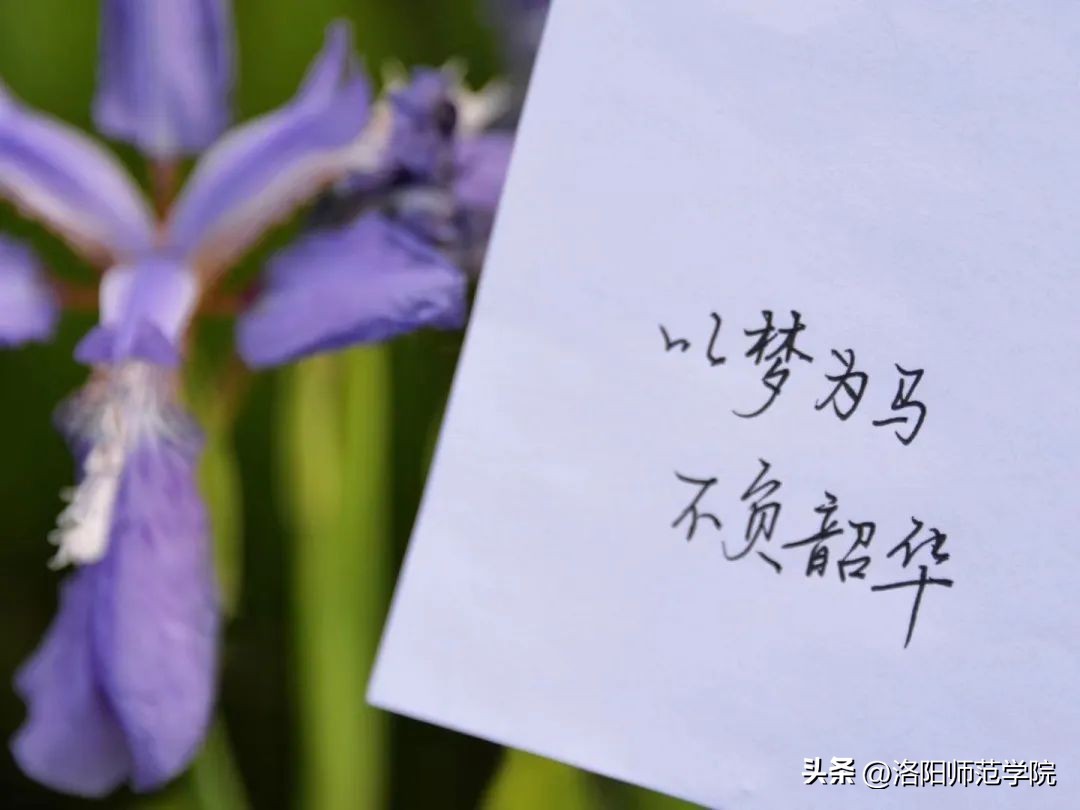 以梦为马
不负韶华
头条 @洛阳师范学院